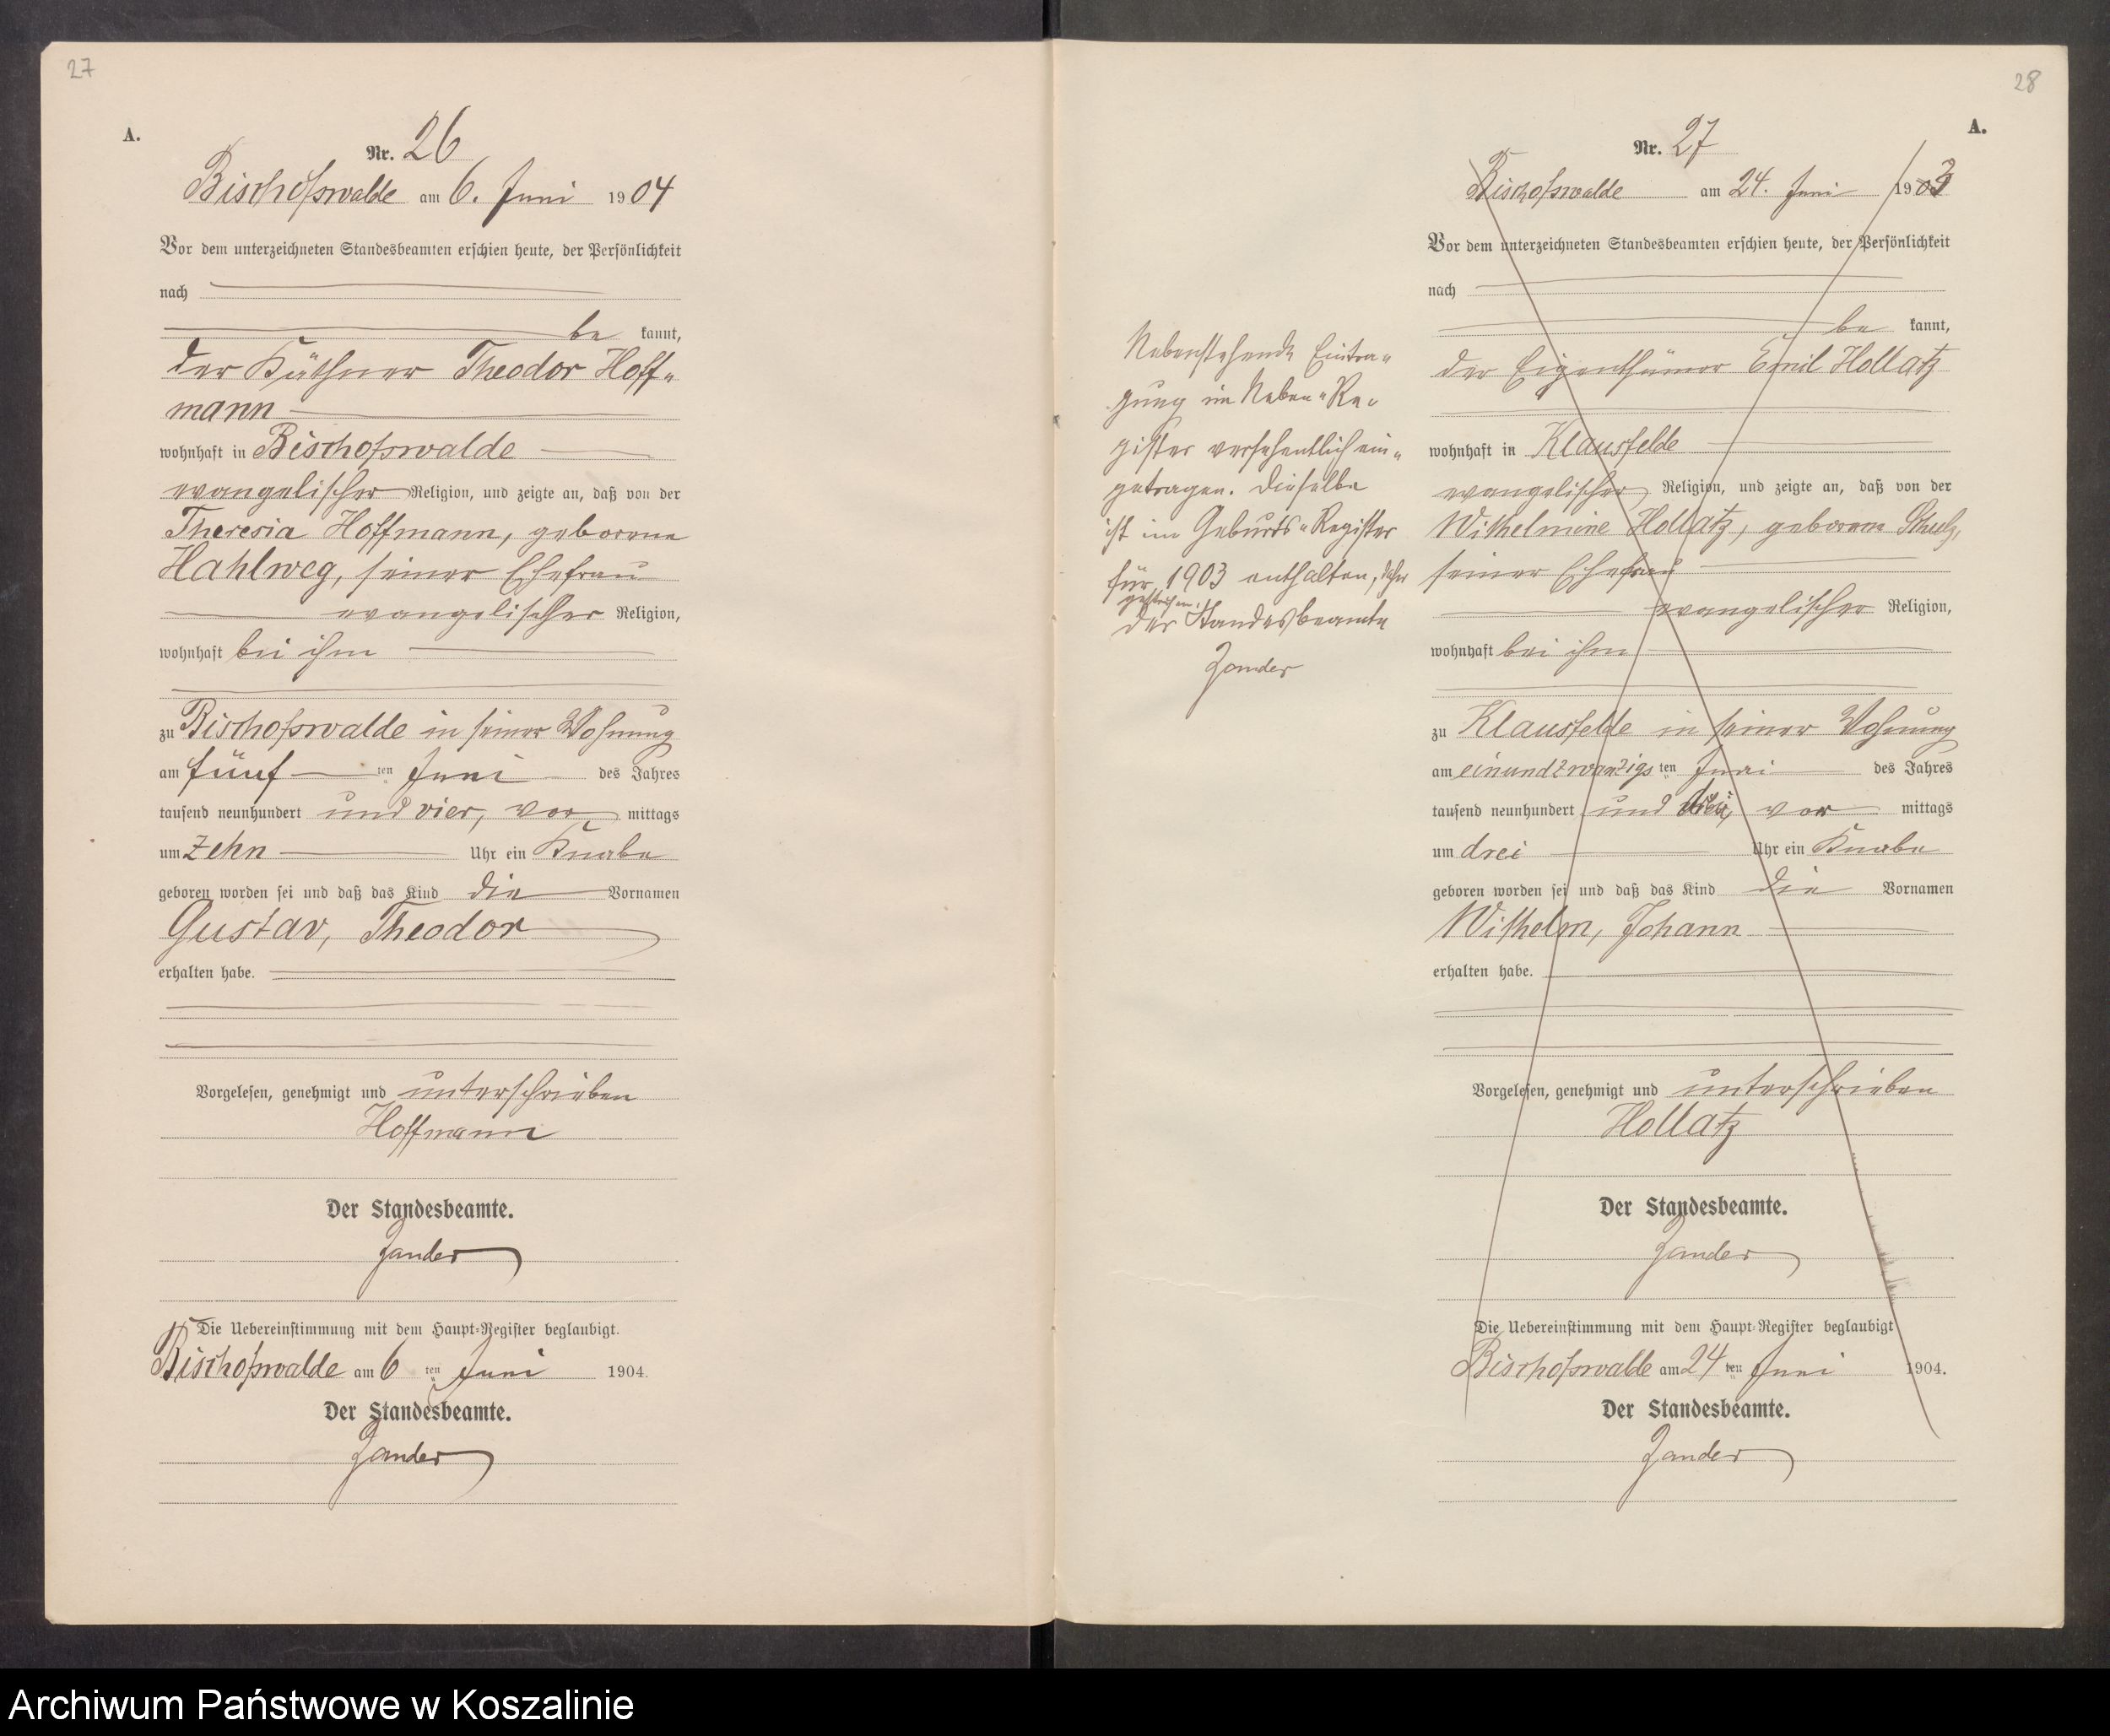 27
A.
Nr. 26
Bischofswalde am 6. Juni 1904
Vor dem unterzeichneten Standesbeamten erschien heute, der Persönlichkeit
nach
be kannt,
der Käthner Theodor Hoff-
mann
wohnhaft in Bischofswalde
evangelischer Religion, und zeigte an, daß von der
Theresia Hoffmann, geborene
Hahlweg, seiner Ehefrau
evangelischer Religion,
wohnhaft bei ihm
zu Bischofswalde in seiner Wohnung
am fünf ten Juni des Jahres
tausend neunhundert und vier, vor mittags
um zehn Uhr ein Knabe
geboren worden sei und daß das Kind die Vornamen
Gustav, Theodor
erhalten habe.
Vorgelesen, genehmigt und unterschrieben
Hoffmann
Der Standesbeamte.
Zander
Die Uebereinstimmung mit dem Haupt-Register beglaubigt.
Bischofswalde am 6 ten Juni 1904.
Der Standesbeamte.
Zander
28
A.
Nr. 27
Bischofswalde am 24. Juni 1903
Vor dem unterzeichneten Standesbeamten erschien heute, der Persönlichkeit
nach
be kannt,
der Eigenthümer Emil Hollatz
wohnhaft in Klausfelde
evangelischer Religion, und zeigte an, daß von der
Wilhelmine Hollatz, geborene Schulz,
seiner Ehefrau
evangelischer Religion,
wohnhaft bei ihm
zu Klausfelde in seiner Wohnung
am einundzwanzigs ten Juni des Jahres
tausend neunhundert und drei, vor mittags
um drei Uhr ein Knabe
geboren worden sei und daß das Kind die Vornamen
Wilhelm, Johann
erhalten habe.
Vorgelesen, genehmigt und unterschrieben
Hollatz
Der Standesbeamte.
Zander
Die Uebereinstimmung mit dem Haupt-Register beglaubigt
Bischofswalde am 24 ten Juni 1904.
Der Standesbeamte.
Zander
Nebenstehende Eintra-
gung im Neben-Re-
gister versehentlich ein-
getragen. Dieselbe
ist im Geburts-Register
für 1903 enthalten, daher
gestrichen.
Der Standesbeamte
Zander
Archiwum Państwowe w Koszalinie